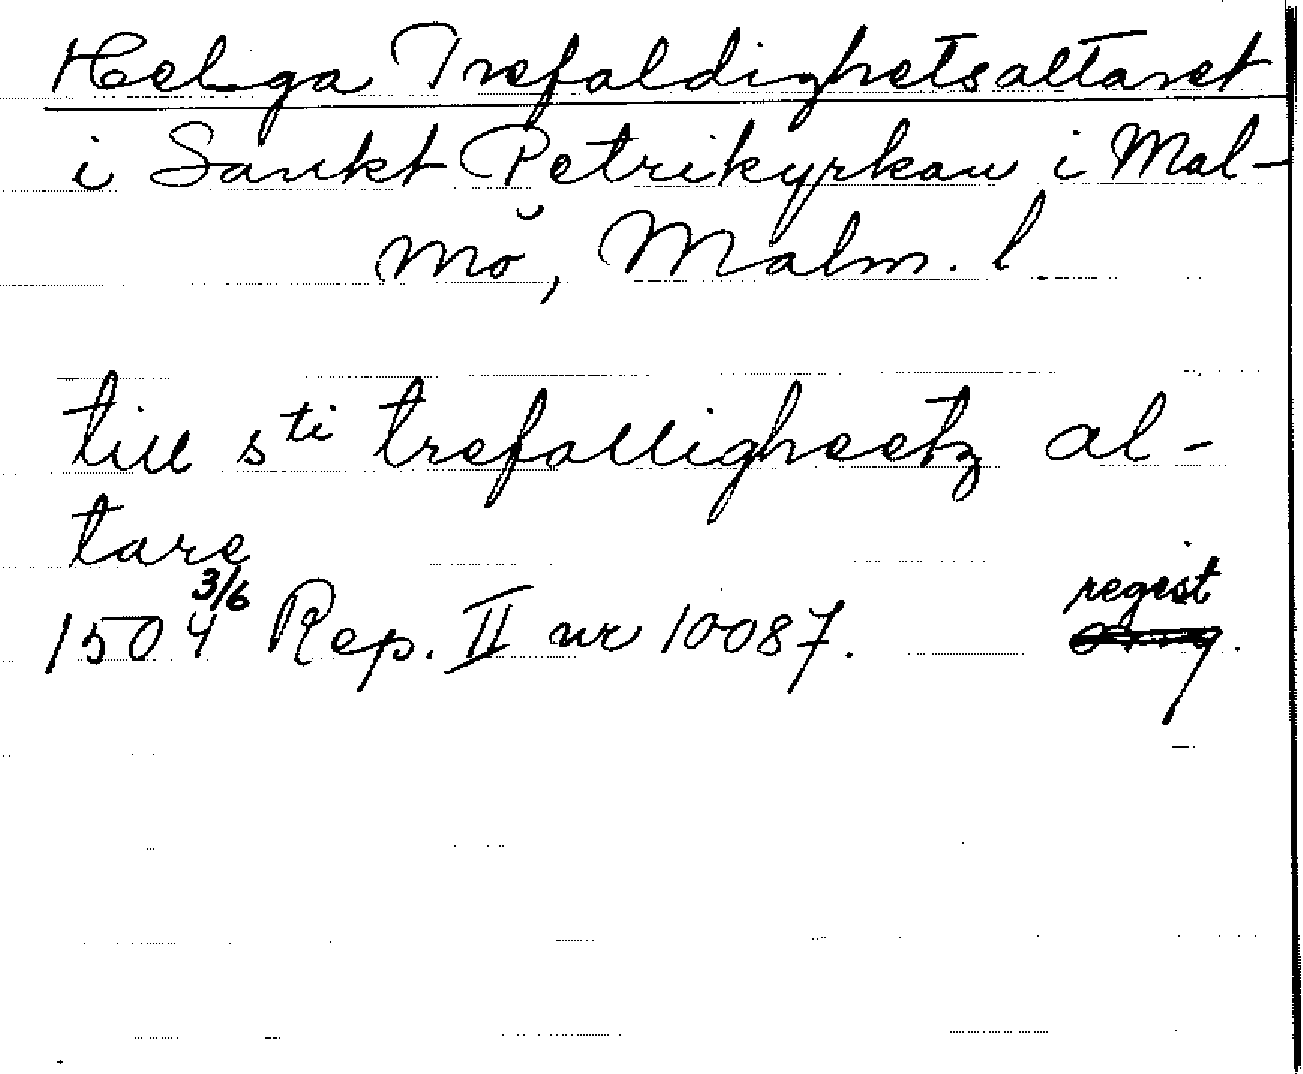 Helga Trefaldighetsaltaret
i Sankt Petrikyrkan i Mal-
mö, Malm. l.
till sti trefalligheetz al-
tare
1504 3/6 Rep. II nr 10087. regist